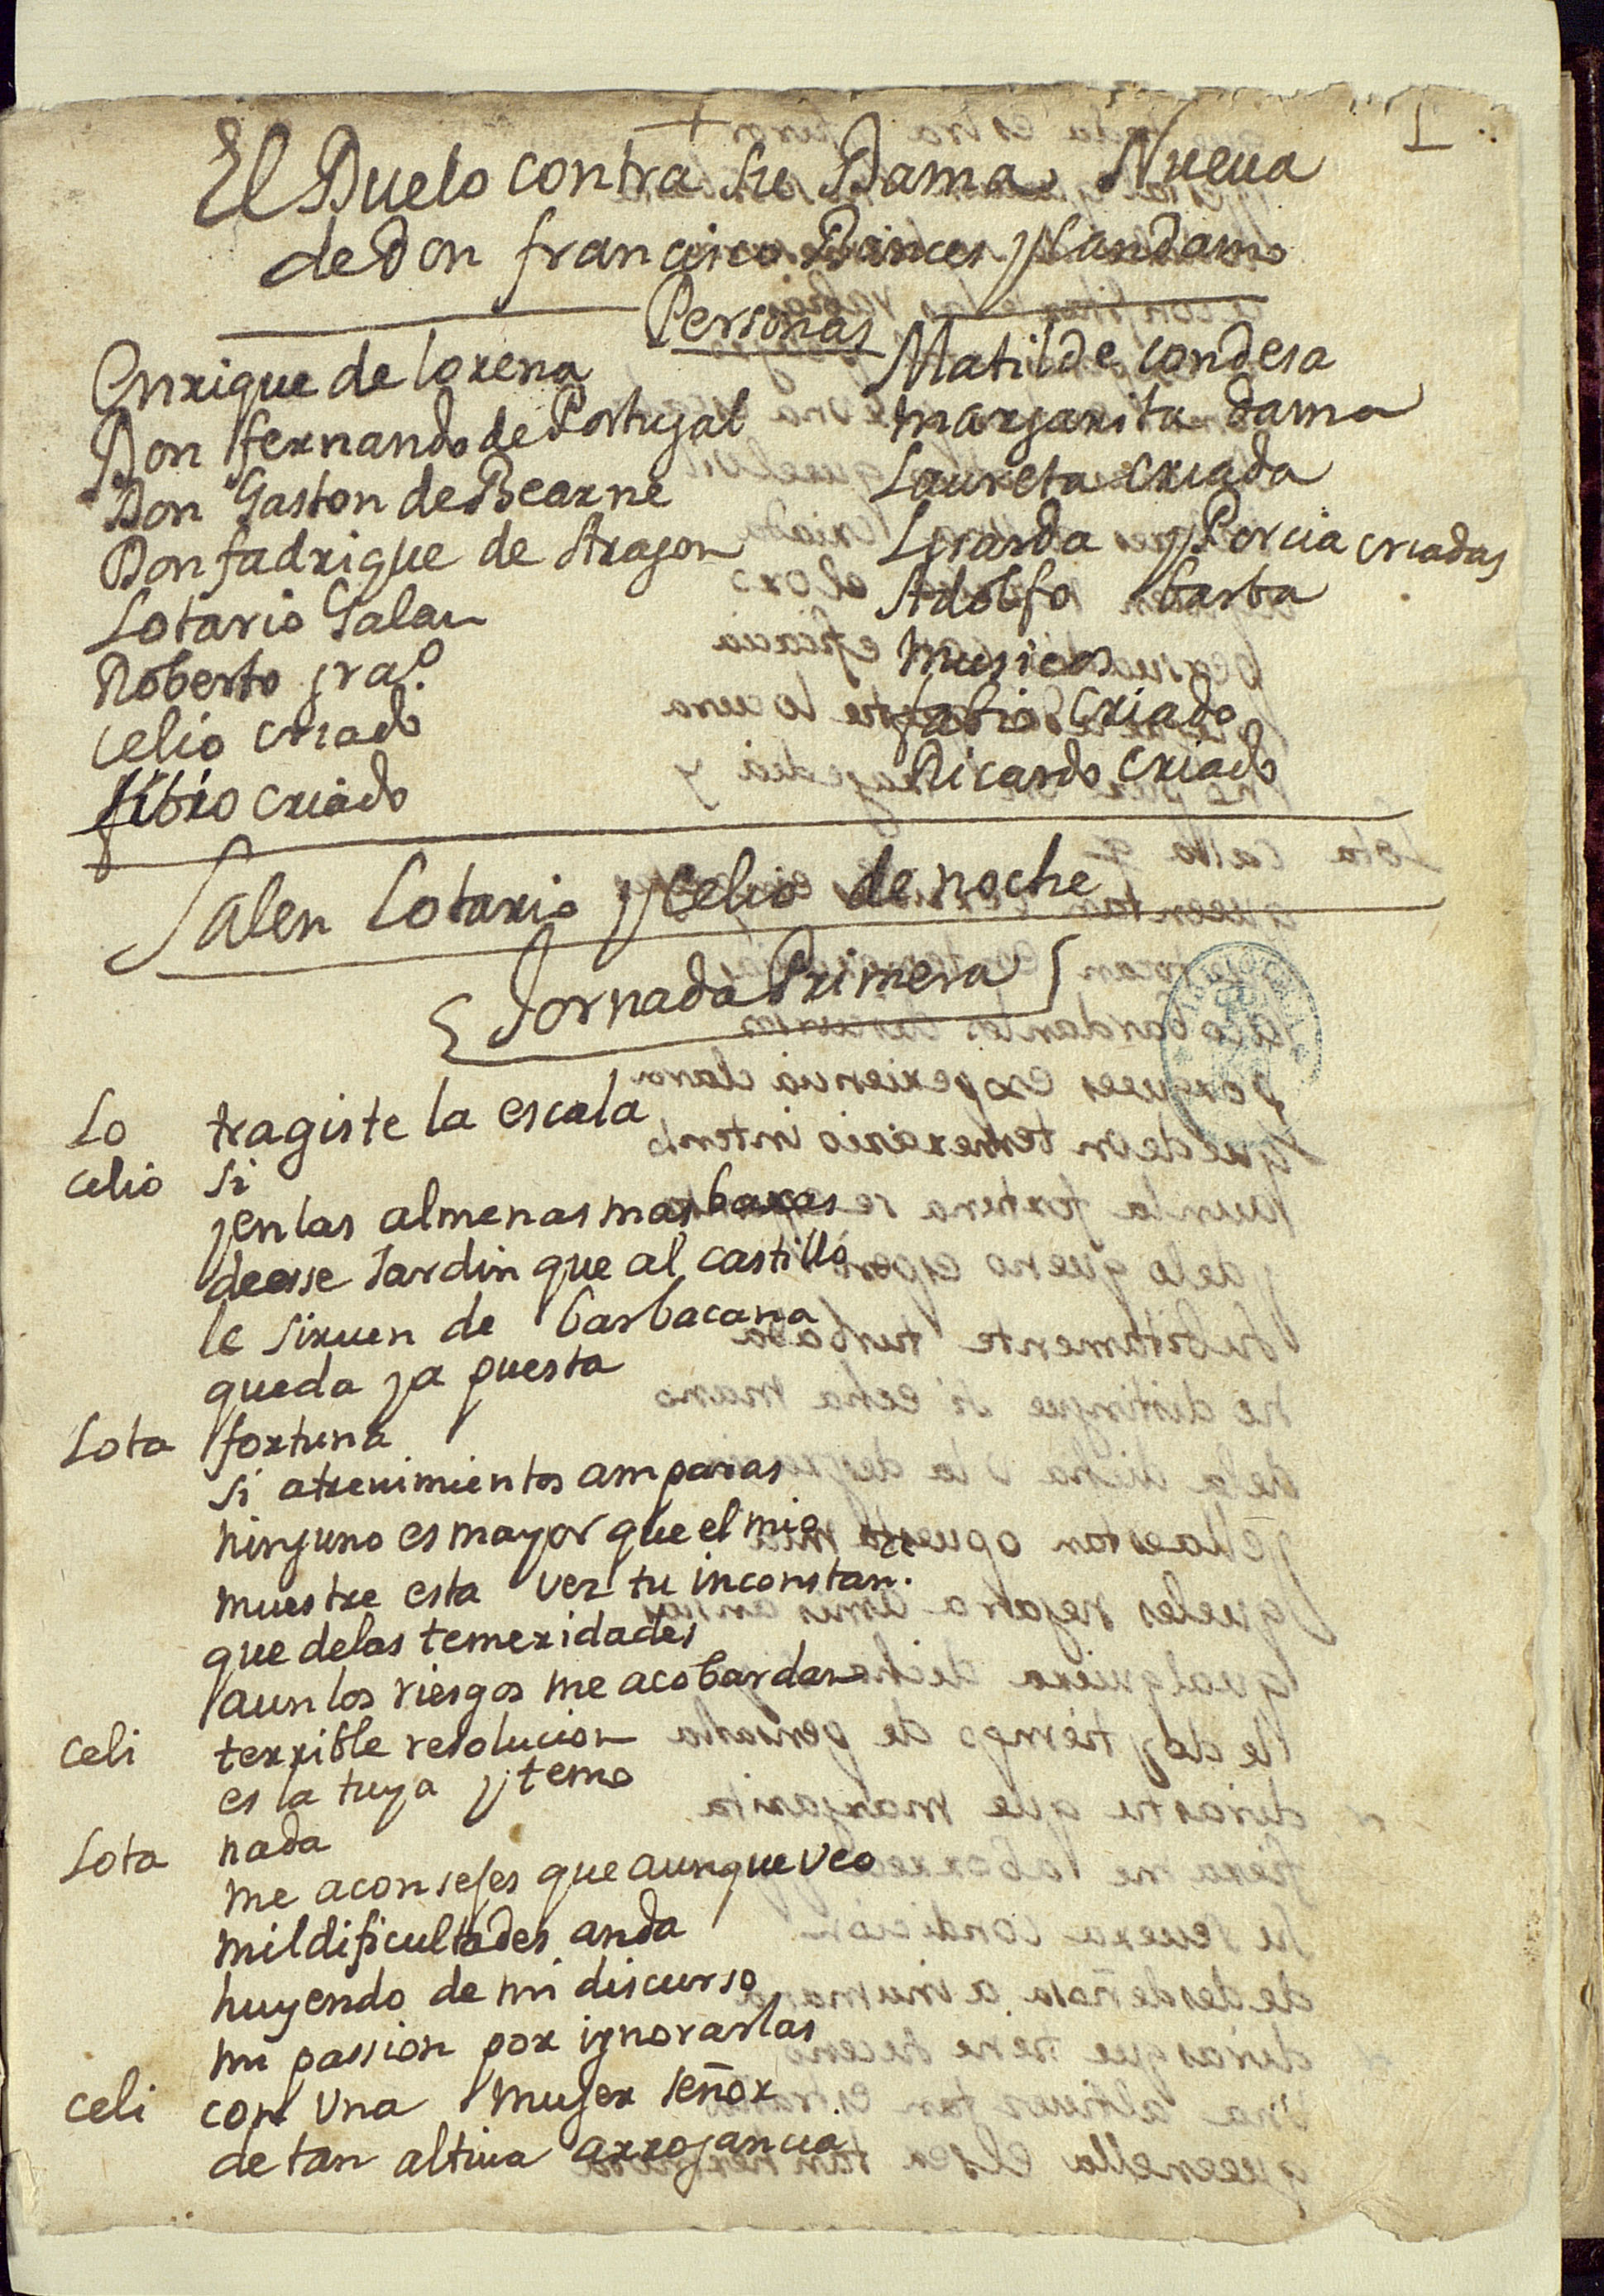 1
El Duelo contra su Dama Nueua
de Don francisco Bances y Candamo
Personas
Enrique de lorena
Don fernando de Portugal
Don Gaston de Bearne
Don fadrique de Aragon
Lotario Galan
Roberto graº.
celio criado
fibio criado
Matilde condesa
margarita dama
Laureta criada
Lisarda y Porcia criadas
Adolfo barba
musicos
fabio criado
Ricardo criado
Salen Lotario y Celio de noche
Jornada Primera
Lo tragiste la escala
celio si
y en las almenas mas baxas
de esse Jardin que al castillo
le siruen de barbacana
queda ya puesta
Lota fortuna
si atreuimientos amparas
ninguno es mayor que el mio
muestre esta vez tu inconstan.cia
que delas temeridades
aun los riesgos me acobardan
celi terrible resolucion
es la tuya y temo
Lota nada
me aconsejes que aunque veo
mil dificultades anda
huyendo de mi discurso
mi passion por ignorarlas
celi con vna mujer señor
de tan altiua arrogancia